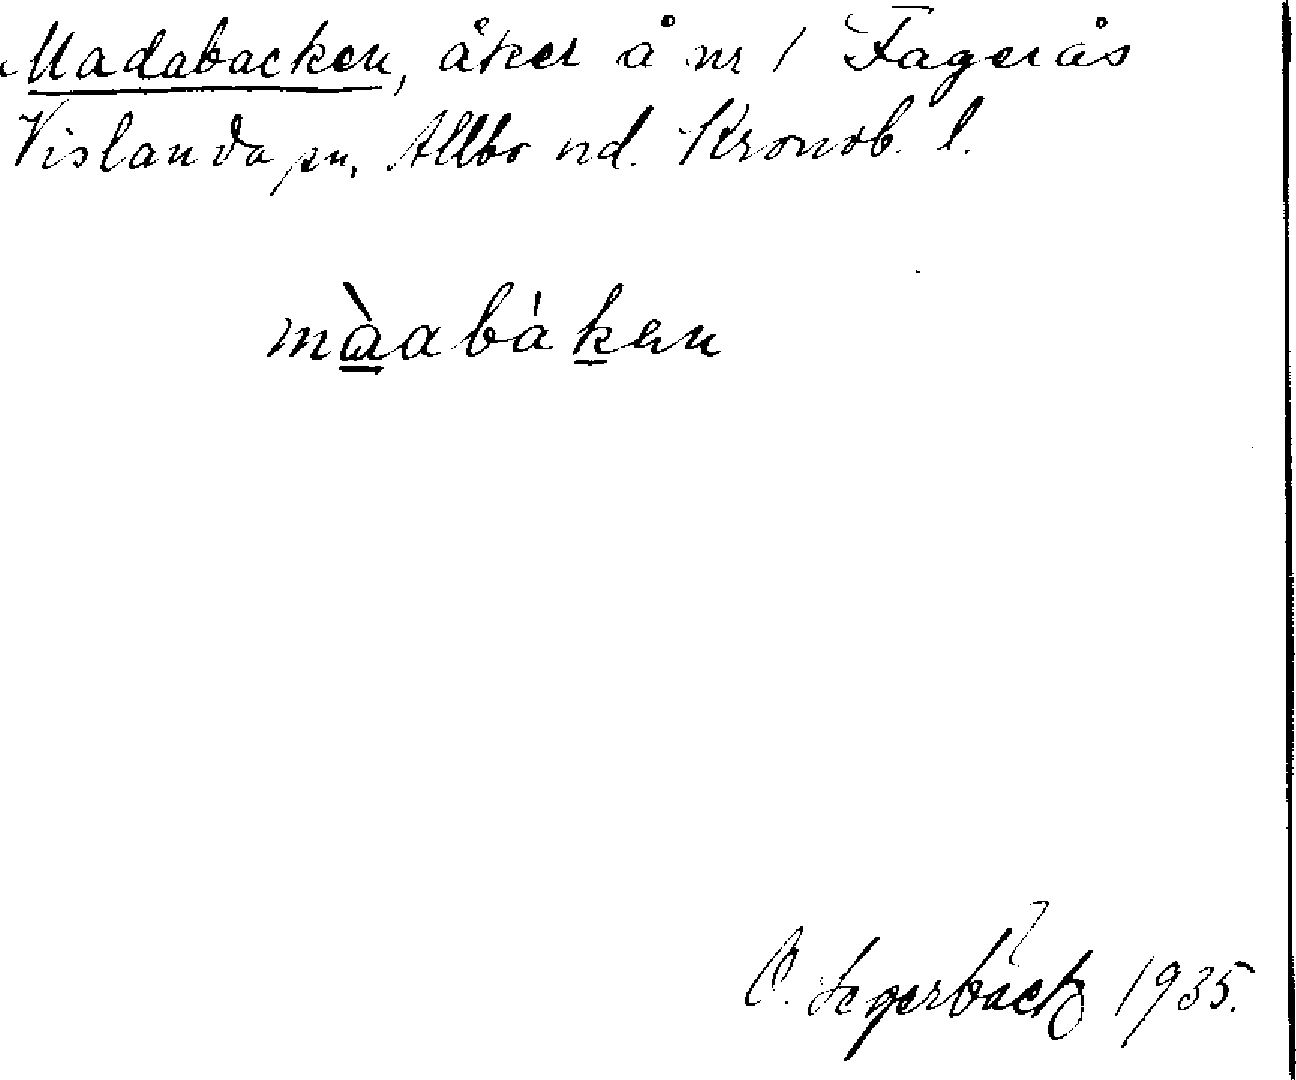 Madabacken, åker å nr 1 Fagerås
Vislanda sn, Allbo hd. Kronob. l.
màabàken
O. Segerbäck 1935.